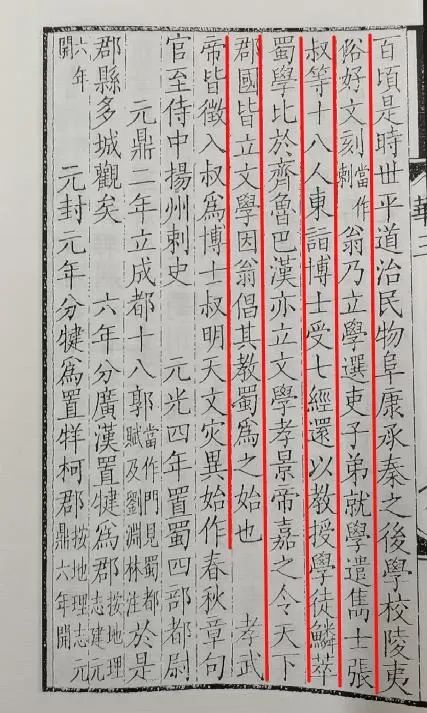 百頃是時世平道治民物阜康承秦之後學校陵夷
俗好文刻當作刺翁乃立學選吏子弟就學遣雋士張
叔等十八人東詣博士受七經還以教授學徒鱗萃
蜀學比於齊魯巴漢亦立文學孝景帝嘉之令天下
郡國皆立文學因翁倡其教蜀爲之始也 孝武
帝皆徵入叔爲博士叔明天文災異始作春秋章句
官至侍中揚州刺史 元光四年置蜀四部都尉
元鼎二年立成都十八郭當作門見蜀都賦及劉淵林注於是
郡縣多城觀矣 六年分廣漢置犍爲郡按地理志建元
六年開 元封元年分犍爲置牂柯郡按地理志元鼎六年開